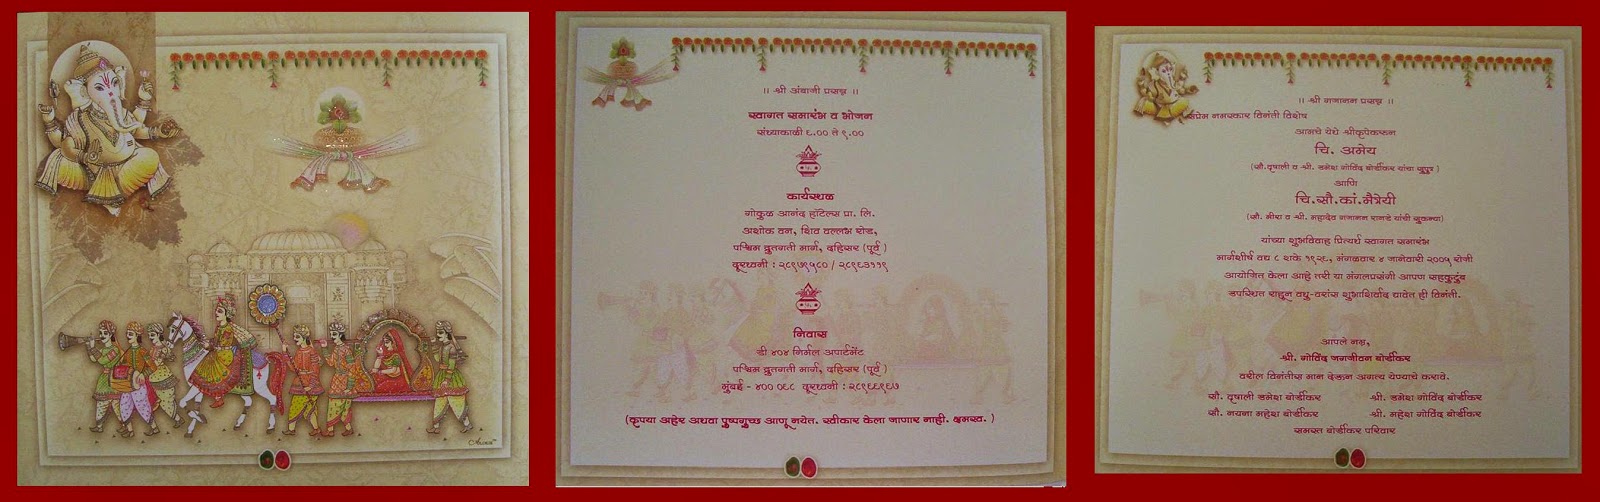 ॥ श्री अंबाजी प्रसन्न ॥
स्वागत समारंभ व भोजन
संध्याकाळी ६.०० ते ९.००
कार्यस्थळ
गोकुळ आनंद हॉटेल्स प्रा. लि.
अशोक वन, शिव वल्लभ रोड,
पश्चिम द्रुतगती मार्ग, दहिसर (पूर्व )
दूरध्वनी : २८९७९५८० / २८९६३११९
निवास
डी ४०४ निर्मल अपार्टमेंट
पश्चिम द्रुतगती मार्ग, दहिसर (पूर्व )
मुंबई - ४०० ०६८ दूरध्वनी : २८९६६९६७
(कृपया अहेर अथवा पुष्पगुच्छ आणू नयेत. स्वीकार केला जाणार नाही. क्षमस्व. )
॥ श्री गजानन प्रसन्न ॥
सप्रेम नमस्कार विनंती विशेष
आमचे येथे श्रीकृपेकरून
चि. अमेय
(सौ.वृषाली व श्री. उमेश गोविंद बोर्डीकर यांचा सुपुत्र )
आणि
चि.सौ.कां.मैत्रेयी
(सौ. मीरा व श्री. महादेव गजानन रानडे यांची सुकन्या)
यांच्या शुभविवाह प्रित्यर्थ स्वागत समारंभ
मार्गशीर्ष वद्य ८ शके १९२६, मंगळवार ४ जानेवारी २००५ रोजी
आयोजित केला आहे तरी या मंगलप्रसंगी आपण सहकुटुंब
उपस्थित राहून वधू-वरांस शुभाशिर्वाद द्यावेत ही विनंती.
आपले नम्र,
श्री. गोविंद जगजीवन बोर्डीकर
वरील विनंतीस मान देऊन अगत्य येण्याचे करावे.
सौ. वृषाली उमेश बोर्डीकर श्री. उमेश गोविंद बोर्डीकर
सौ. नयना महेश बोर्डीकर श्री. महेश गोविंद बोर्डीकर
समस्त बोर्डीकर परिवार